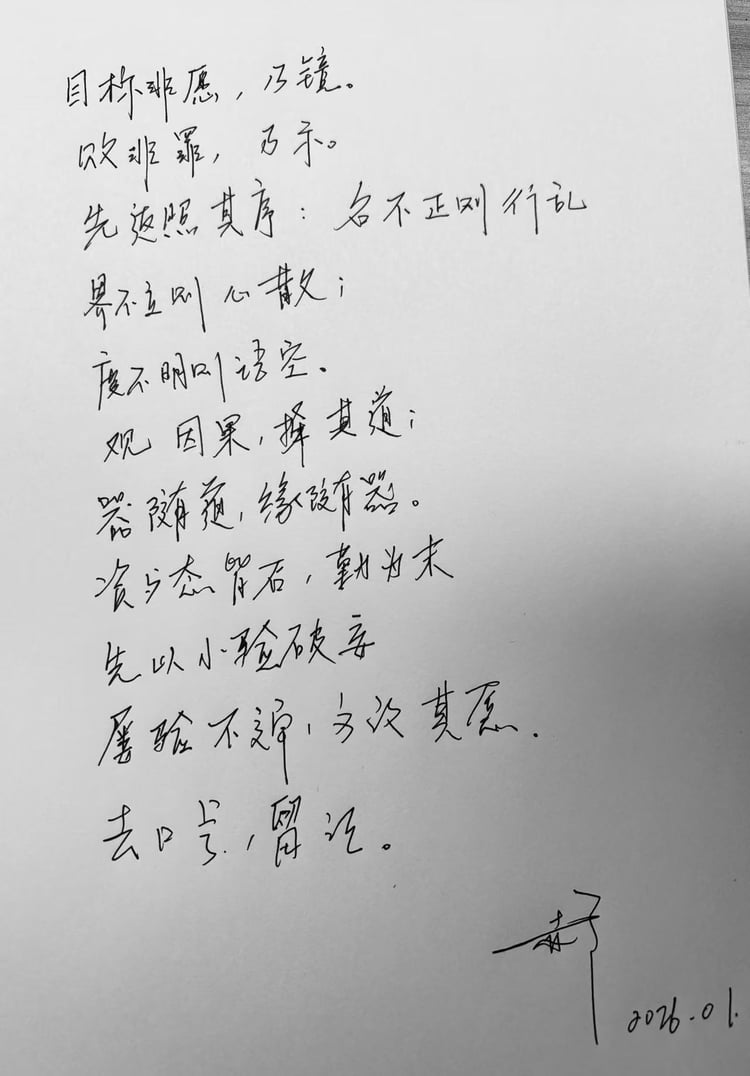 目标非愿，乃镜。
败非罪，乃示。
先返照其序：名不正则行乱
界不立则心散；
度不明则语空。
观因果，择其道；
器随道，缘随器。
资与态皆后，勤为末
先以小验破妄
屡验不弃，方议其愿．
去口号，留证。
郝
2026.01.